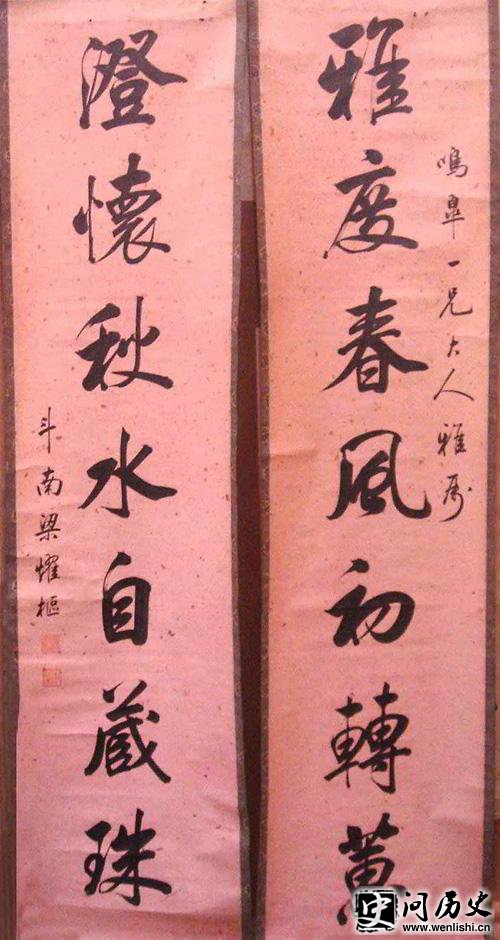 鳴皐一兄大人雅屬
雅度春風初轉蕙
澄懷秋水自藏珠
斗南梁燿樞
问历史
www.wenlishi.cn